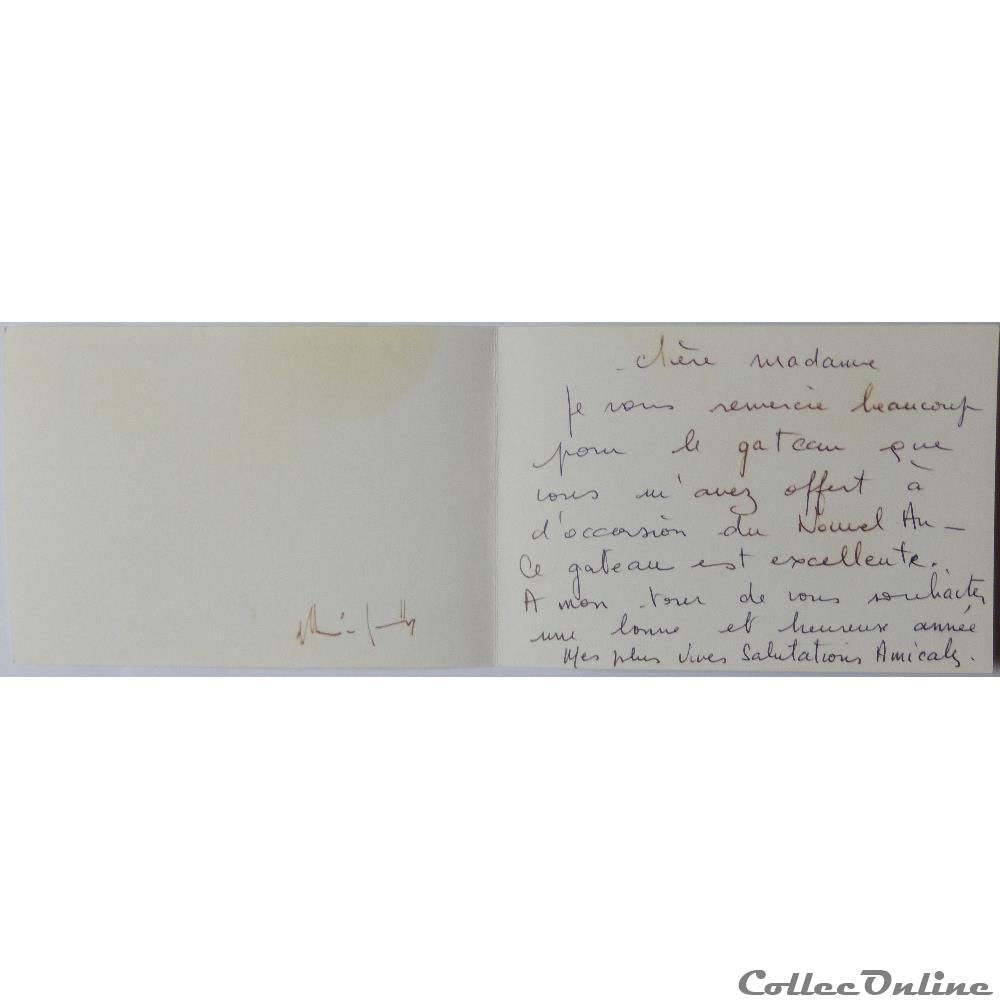 chère madame
Je vous remercie beaucoup
pour le gateau que
vous m'avez offert à
d'occasion du Nouvel An -
Ce gateau est excellente..
A mon tour de vous souhaiter
une bonne et heureuse année
Mes plus vives Salutations Amicals.
CollecOnline